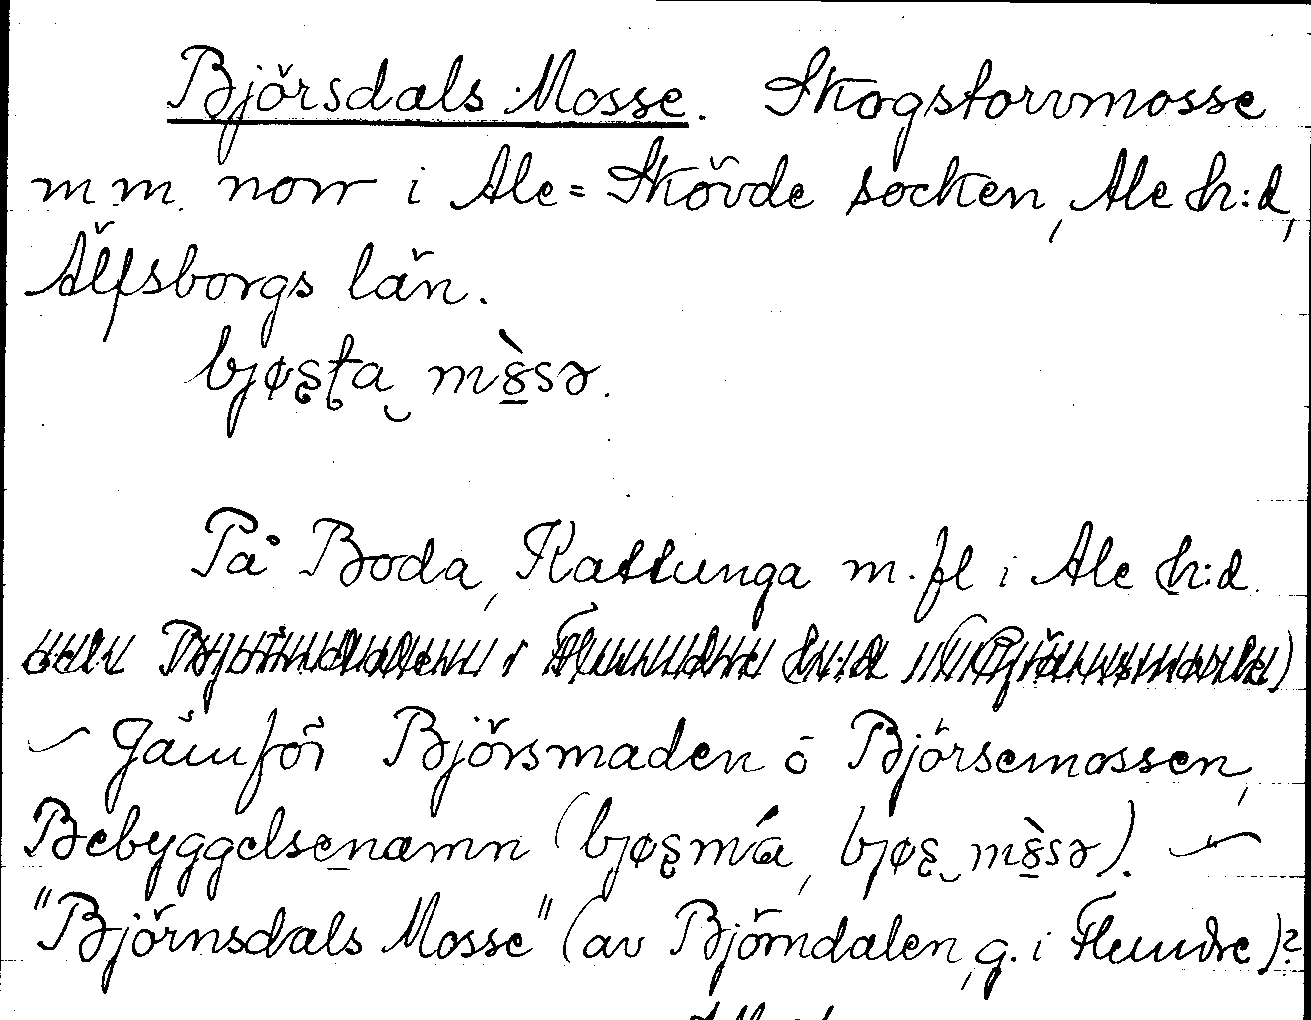 Björsdals Mosse. Skogstorvmosse
m.m. norr i Ale-Skövde socken, Ale h:d,
Älfsborgs län.
bjøʂʈa mɞ̀sə.
På Boda, Kattunga m.fl i Ale h:d.
– Jämför Björsmaden o Björsemossen,
Bebyggelsenamn (bjøʂmá, bjøʂ mɞ̀sə). –
"Björnsdals Mosse" (av Björndalen, g. i Flundre)?